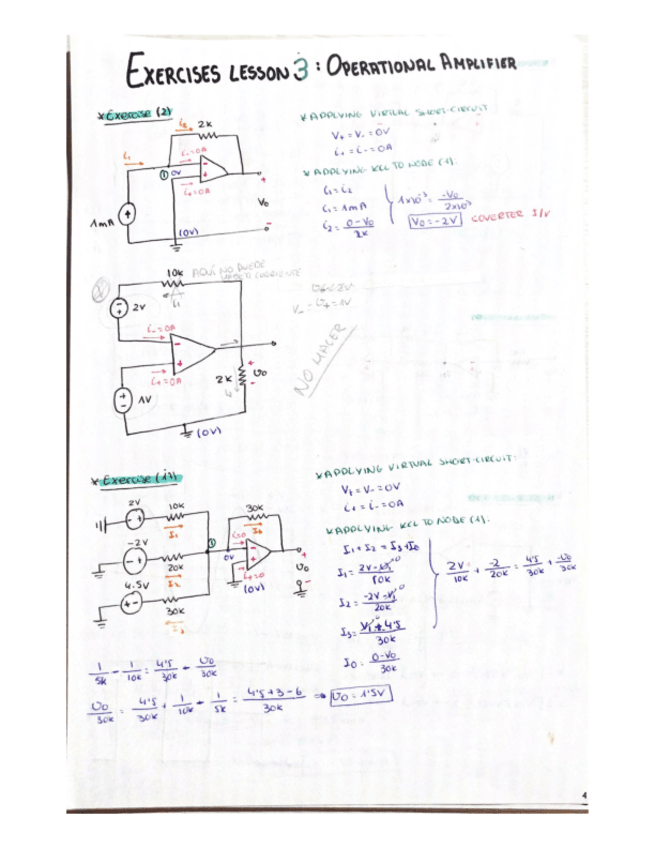 EXERCISES LESSON 3: OPERATIONAL AMPLIFIER
* Exercise (2)
2k
i₂
i₋=0A
i₁
① 0V
i₊=0A
1mA
V₀
(0V)
* APPLYING VIRTUAL SHORT-CIRCUIT
V₊ = V₋ = 0V
i₊ = i₋ = 0A
* APPLYING KCL TO NODE (1):
i₁ = i₂
i₁ = 1mA
i₂ = 0-V₀ / 2k
1x10⁻³ = -V₀ / 2x10³
V₀ = -2V
COVERTER I/V
10k AQUÍ NO PUEDE
HABER CORRIENTE
i₁
2V
i₋=0A
i₊=0A
1V
2k
V₀
(0V)
NO HACER
* Exercise (17)
2V
10k
I₁
-2V
20k
I₂
4.5V
30k
①
0V
30k
I₀
i=0
i=0
(0V)
V₀
* APPLYING VIRTUAL SHORT-CIRCUIT:
V₊ = V₋ = 0V
i₊ = i₋ = 0A
* APPLYING KCL TO NODE (1):
I₁ + I₂ = I₃ + I₀
I₁ = 2V - V₁⁰ / 10k
I₂ = -2V - V₁⁰ / 20k
I₃ = V₁ + 4'5 / 30k
I₀ = 0-V₀ / 30k
2V/10k + -2/20k = 4'5/30k + -V₀/30k
1/5k - 1/10k = 4'5/30k - V₀/30k
V₀/30k = 4'5/30k + 1/10k - 1/5k = 4'5+3-6 / 30k ⇒ V₀ = 1'5V
4